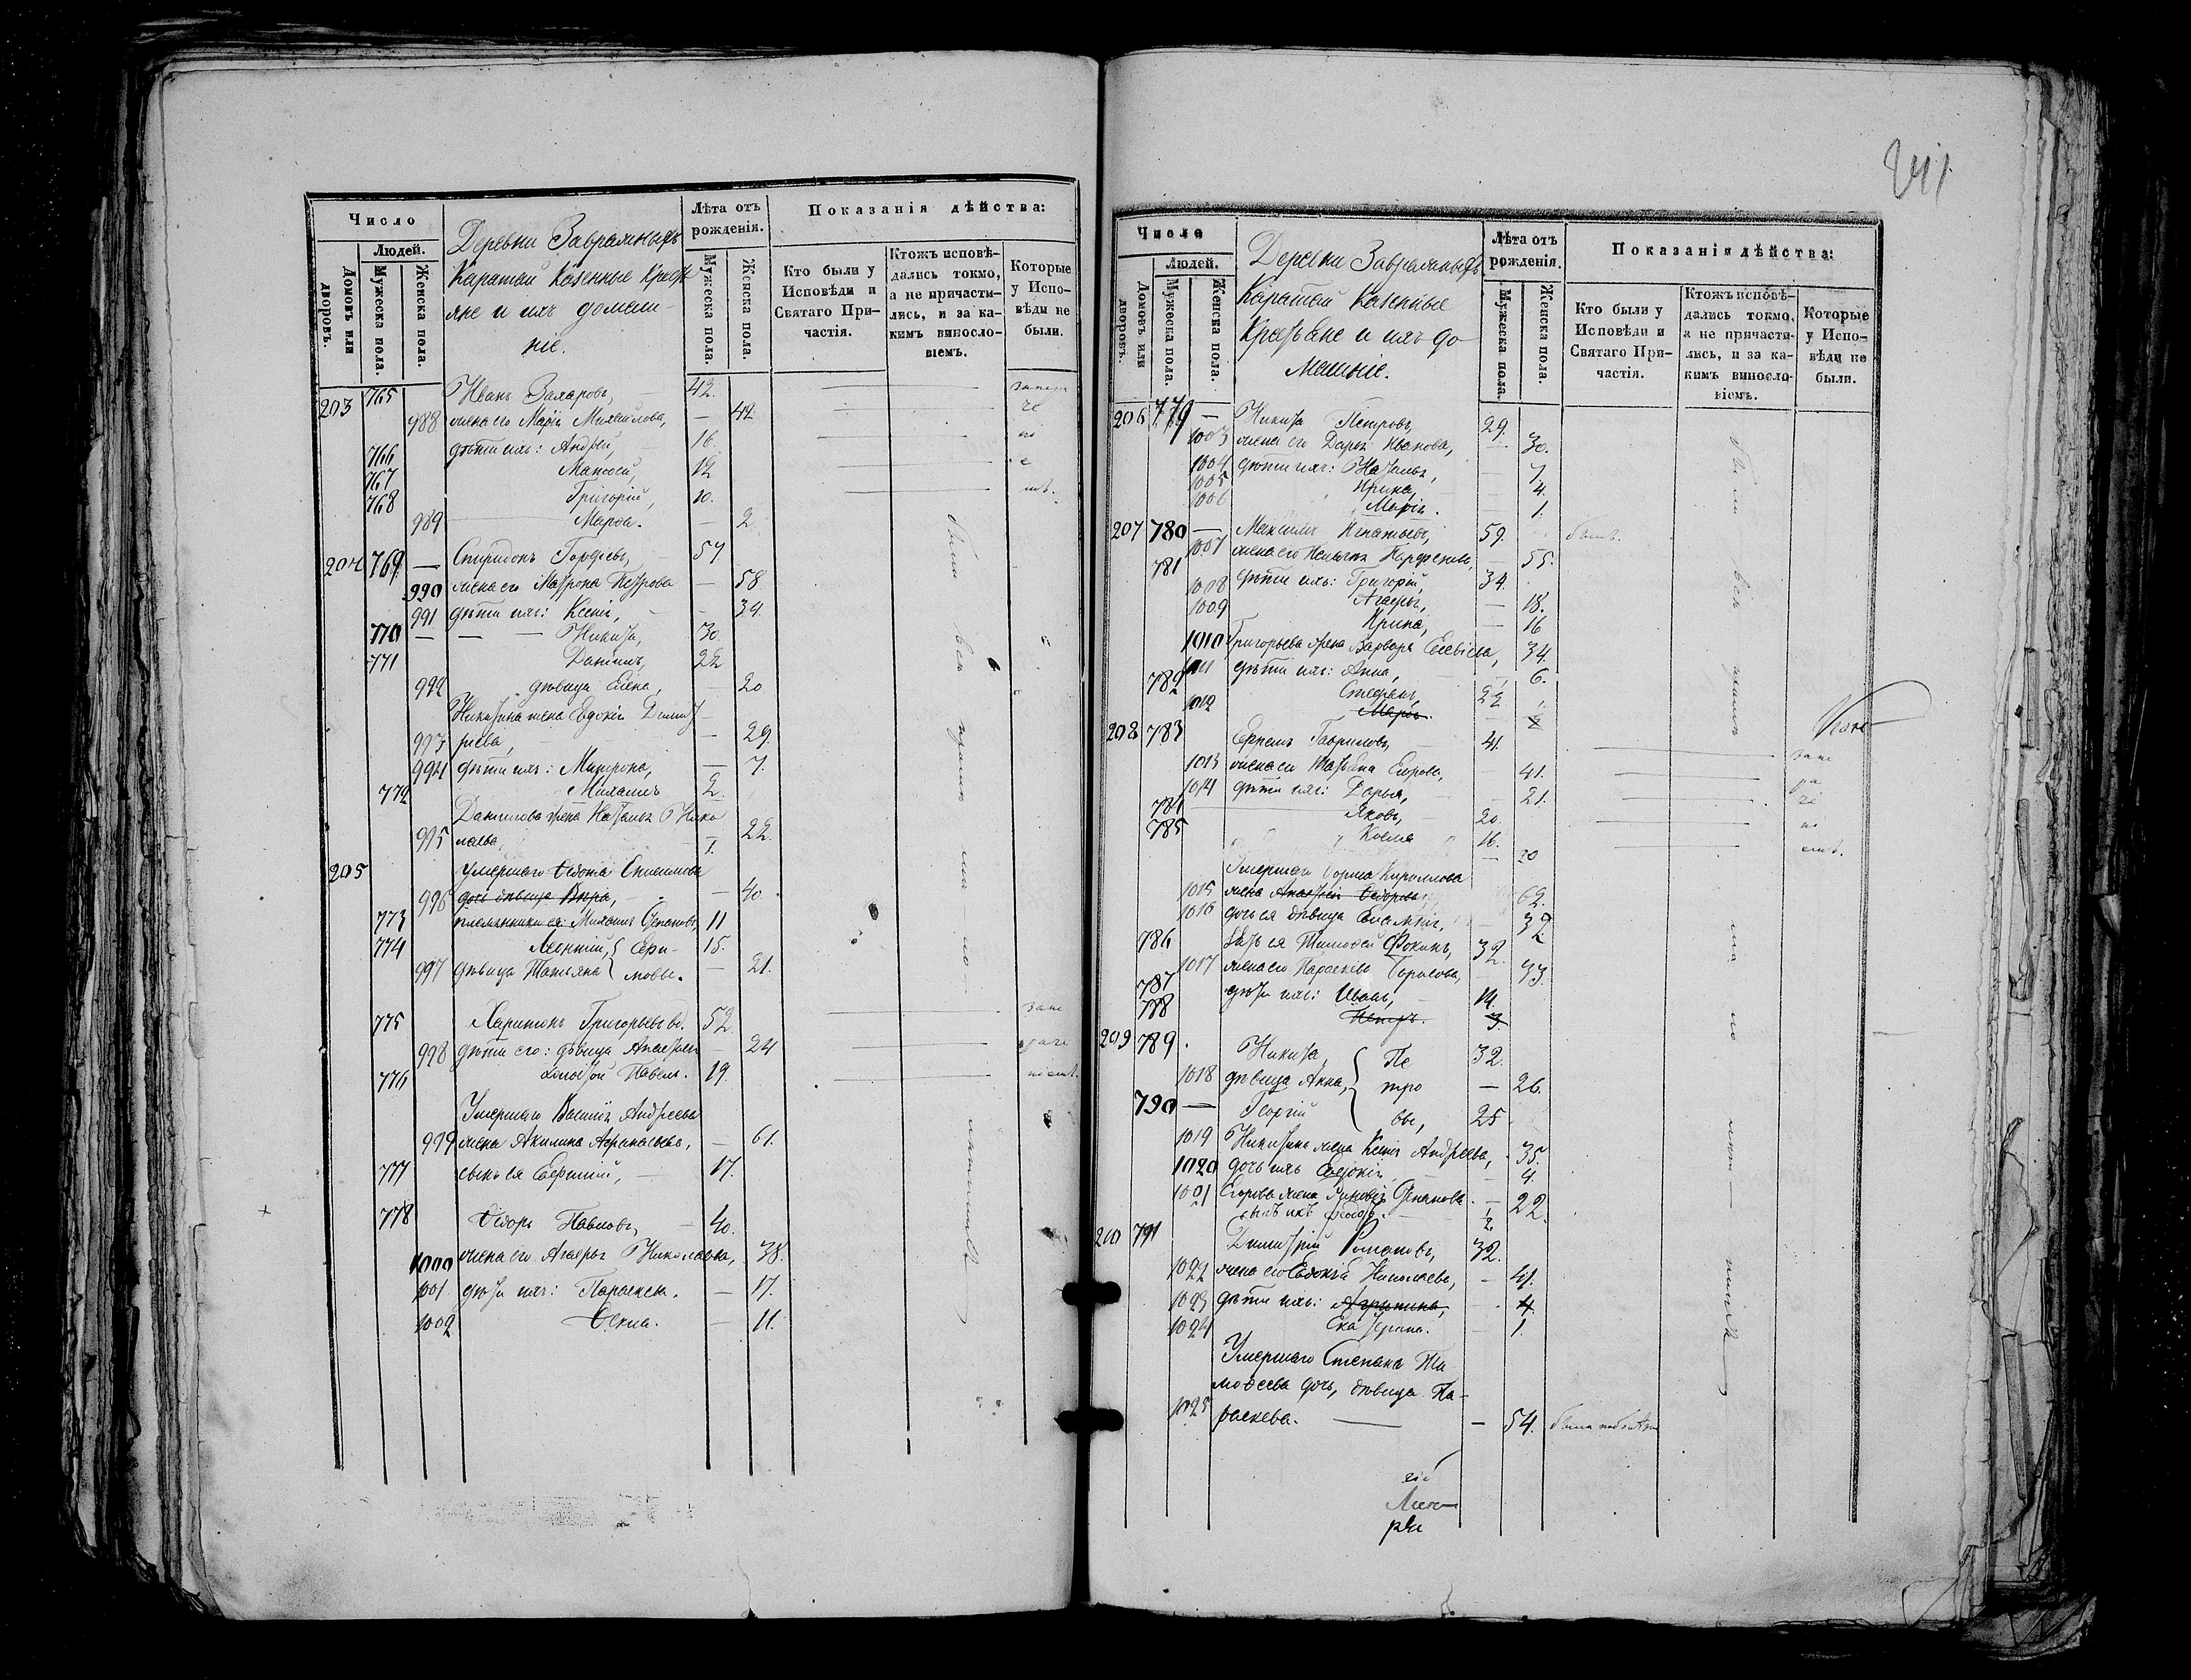 Число
Людей.
Домовъ или дворовъ.
Мужеска пола.
Женска пола.
Деревни
Каратай Казенные Кресть
яне и ихъ домаш-
ніе.
Лѣта отъ рожденія.
Мужеска пола.
Женска пола.
Показанія дѣйства:
Кто были у Исповѣди и Святаго При-частія.
Ктожъ исповѣ-дались токмо, а не причасти-лись, и за ка-кимъ виносло-віемъ.
Которые у Испо-вѣди не были.
203 765 Иванъ Захаровъ, 42.
988 жена его Марія Михаилова, — 42
766 дѣти ихъ: Андрей, 16.
767 Матѳей, 12
768 Григорій, 10.
989 Марѳа. — 2
204 769 — Спиридонъ 57
990 жена его Матрона Петрова — 58.
991 дѣти ихъ: Ксенія, — 34.
770 — Никита, 30.
771 Даніилъ, 22
992 дѣвица Елена, — 20
Никитина жена Евдокія Димит
993 ріева, — 29.
994 дѣти ихъ: Митрона, — 7.
772 Михаилъ 2
Данилова жена Наталья Нико
995 лаева, 1. 22.
205 умершаго Ѳедота
996 дочь дѣвица Вѣра, — 40.
773 племянники ея: Михаилъ Степановъ, 11
774 Леонтій, Ефи- 15.
997 дѣвица Татьяна мовы. — 21.
775 Харитонъ Григорьевъ вд. 52
998 дѣти его: дѣвица Анастасія — 24
776 холостой Павелъ. 19.
Умершаго Василія Андреева
999 жена Акилина Аѳанасьева, — 61.
777 сынъ ея Евфимій, — 17.
778 Ѳедоръ Павловъ, — 40.
1000 жена его Агафья Николаева, 38.
1001 дѣти ихъ: Параскева. — 17.
1002 Ѳекла. — 11.
были всѣ
241
Число
Людей.
Домовъ или дворовъ.
Мужеска пола.
Женска пола.
Деревни
Каратай Казенные
Крестьяне и ихъ до
машніе.
Лѣта отъ рожденія.
Мужеска пола.
Женска пола.
Показанія дѣйства:
Кто были у Исповѣди и Святаго При-частія.
Ктожъ исповѣ-дались токмо, а не причасти-лись, и за ка-кимъ винословіемъ.
Которые у Испо-вѣди не были.
206 779 — Никита Петровъ, 29.
1003 жена его Дарья Иванова, — 30.
1004 дѣти ихъ: Наталья, — 7.
1005 Ирина, — 4.
1006 Марія. — 1.
207 780 — Максимъ Игнатьевъ, 59.
1007 жена его — 55.
781 дѣти ихъ: Григорій, 34.
1008 Агафья, — 18.
1009 Ирина, — 16
1010 Григорьева жена Варвара 34.
1011 дѣти ихъ: Анна, — 6.
782 Стефанъ, 2
1012 Марѳа. — 2
208 783 Гавриловъ, 41.
1013 жена его Татьяна Егорова, — 41.
1014 дѣти ихъ: Дарья, — 21.
784 Яковъ, 20.
785 Козма 16.
— 20
Умершаго Кириллова
1015 жена Анастасія Ѳедорова, 62.
1016 дочь ея дѣвица 32
786 зять ея Тимоѳей Фокинъ, 32.
1017 жена его Параскева Борисова, — 33.
787 дѣти ихъ: Иванъ, 14.
788 Петръ. 3.
209 789 Никита, Пе 32.
1018 дѣвица Анна, тро — 26.
790 — Георгій вы, 25
1019 Никитина жена Ксенія Андреева, 35.
1020 дочь ихъ Евдокія — 4.
1021 Егорова жена Степанова — 22.
210 791 Димитрій Романовъ, 32.
1022 жена его Евдокія Николаева, — 41.
1023 дѣти ихъ: Агрипина, — 4.
1024 Екатерина. — 1.
Умершаго Степана Ти
моѳеева дочь, дѣвица Па-
1025 раскева. — — 54.